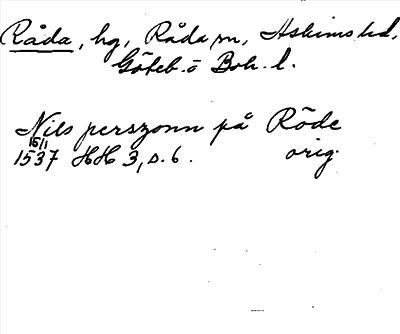 Råda, hg, Råda sn, Askims hd,
Göteb. o Boh. l.
Nils perszonn på Röde
15/1
1537 HH 3, s. 6. orig.